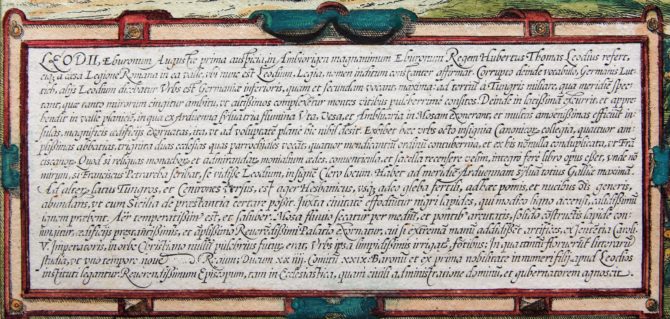 LEODII, Eburonum Augustæ prima auspicia in Ambiorigem magnanimum Eburonum Regem Hubertus Thomas Leodius refert,
eiq3 a cæsa Legione Romana in ea valle, vbi nunc est Leodium, Legia, nomen inditum constanter affirmat. Corrupto deinde vocabulo, Germanis Lut-
tich, alijs Leodium dicebatur. Vrbs est Germaniæ inferioris, quam et secundam vocant, maxima: ad tertium à Tungris miliare, qua meridiē spec-
tant, quæ tanto murorum cingitur ambitu, vt altissimos complexetur montes vitibus pulcherrimè consitos. Deinde in latissimā excurrit, et appre-
hendit in valle planiciē, in qua ex Arduennæ sylua tria flumina Vta, Vesa, et Ambluaria in Mosam exonerant, et multas amœnissimas efficiūt in-
sulas, magnificis ædificijs exornatas, ita, vt ad voluptatē planè nic nihil desit. Exhibet hæc vrbs octo insignia Canonicoꝝ collegia, quattuor am-
plissimas abbatias, triginta duas ecclesias quas parrochiales vocāt, quatuor mendicantiū ordinū contubernia, et ex his nonnulla conduplicata, vt Frā
ciscanorū. Quod si reliquas monachoꝝ et admirandas monialium ædes, conuenticula, et sacella recensere velim, integro ferè libro opus esset, vnde nō
mirum, si Franciscus Petrarcha scribat, se vidisse Leodium, insignē Clero locum. Habet ad meridiē Arduennam syluā totius Galliæ maximā.
Ad alteꝝ latus Tungros, et Centrones versus, est ager Hesbanicus, vsq3 adeo gleba fertili, adhæc pomis, et nucibus oīs generis,
abundans, vt cum Sicilia de præstantia certare possit. Iuxta ciuitatē effodiūtur nigri lapides, qui modico ligno accensi, calidissimū
ignem præbent. Aër temperatissimꝰ est, et saluber. Mosa fluuio secatur per mediū, et pontibꝰ arcuatis, solido constructis lapide con-
iungitur, ædificijs præstantissimis, et amplissimo Reuerendissimi Palatio exornatur, cui si extremā manū addidisset artifices, ex sententia Caroli
V. Imperatoris, in orbe Christiano nullū pulchrius futuꝝ erat. Vrbs ipsa limpidissimis irrigatꝰ fōtibus: In qua intātū floruerūt litterarū
studia, vt vno tempore nouē Regum, Ducum XXIIII, Comitū XXIX. Baronū et ex prima nobilitate innumeri filij apud Leodios
instituti legantur. Reuerendissimum Episcopum, tam in Ecclesiastica, quam ciuili administratione dominū, et gubernatorem agnoscit.